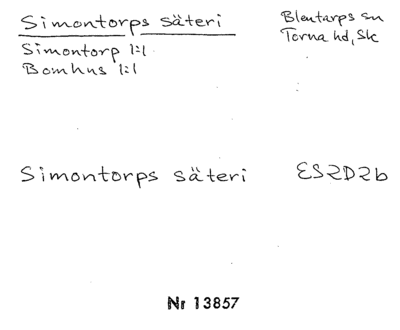 Simontorps säteri
Simontorp 1:1
Bomhus 1:1
Blentarps sn
Torna hd, Sk
Simontorps säteri
ES2D2b
Nr 13857